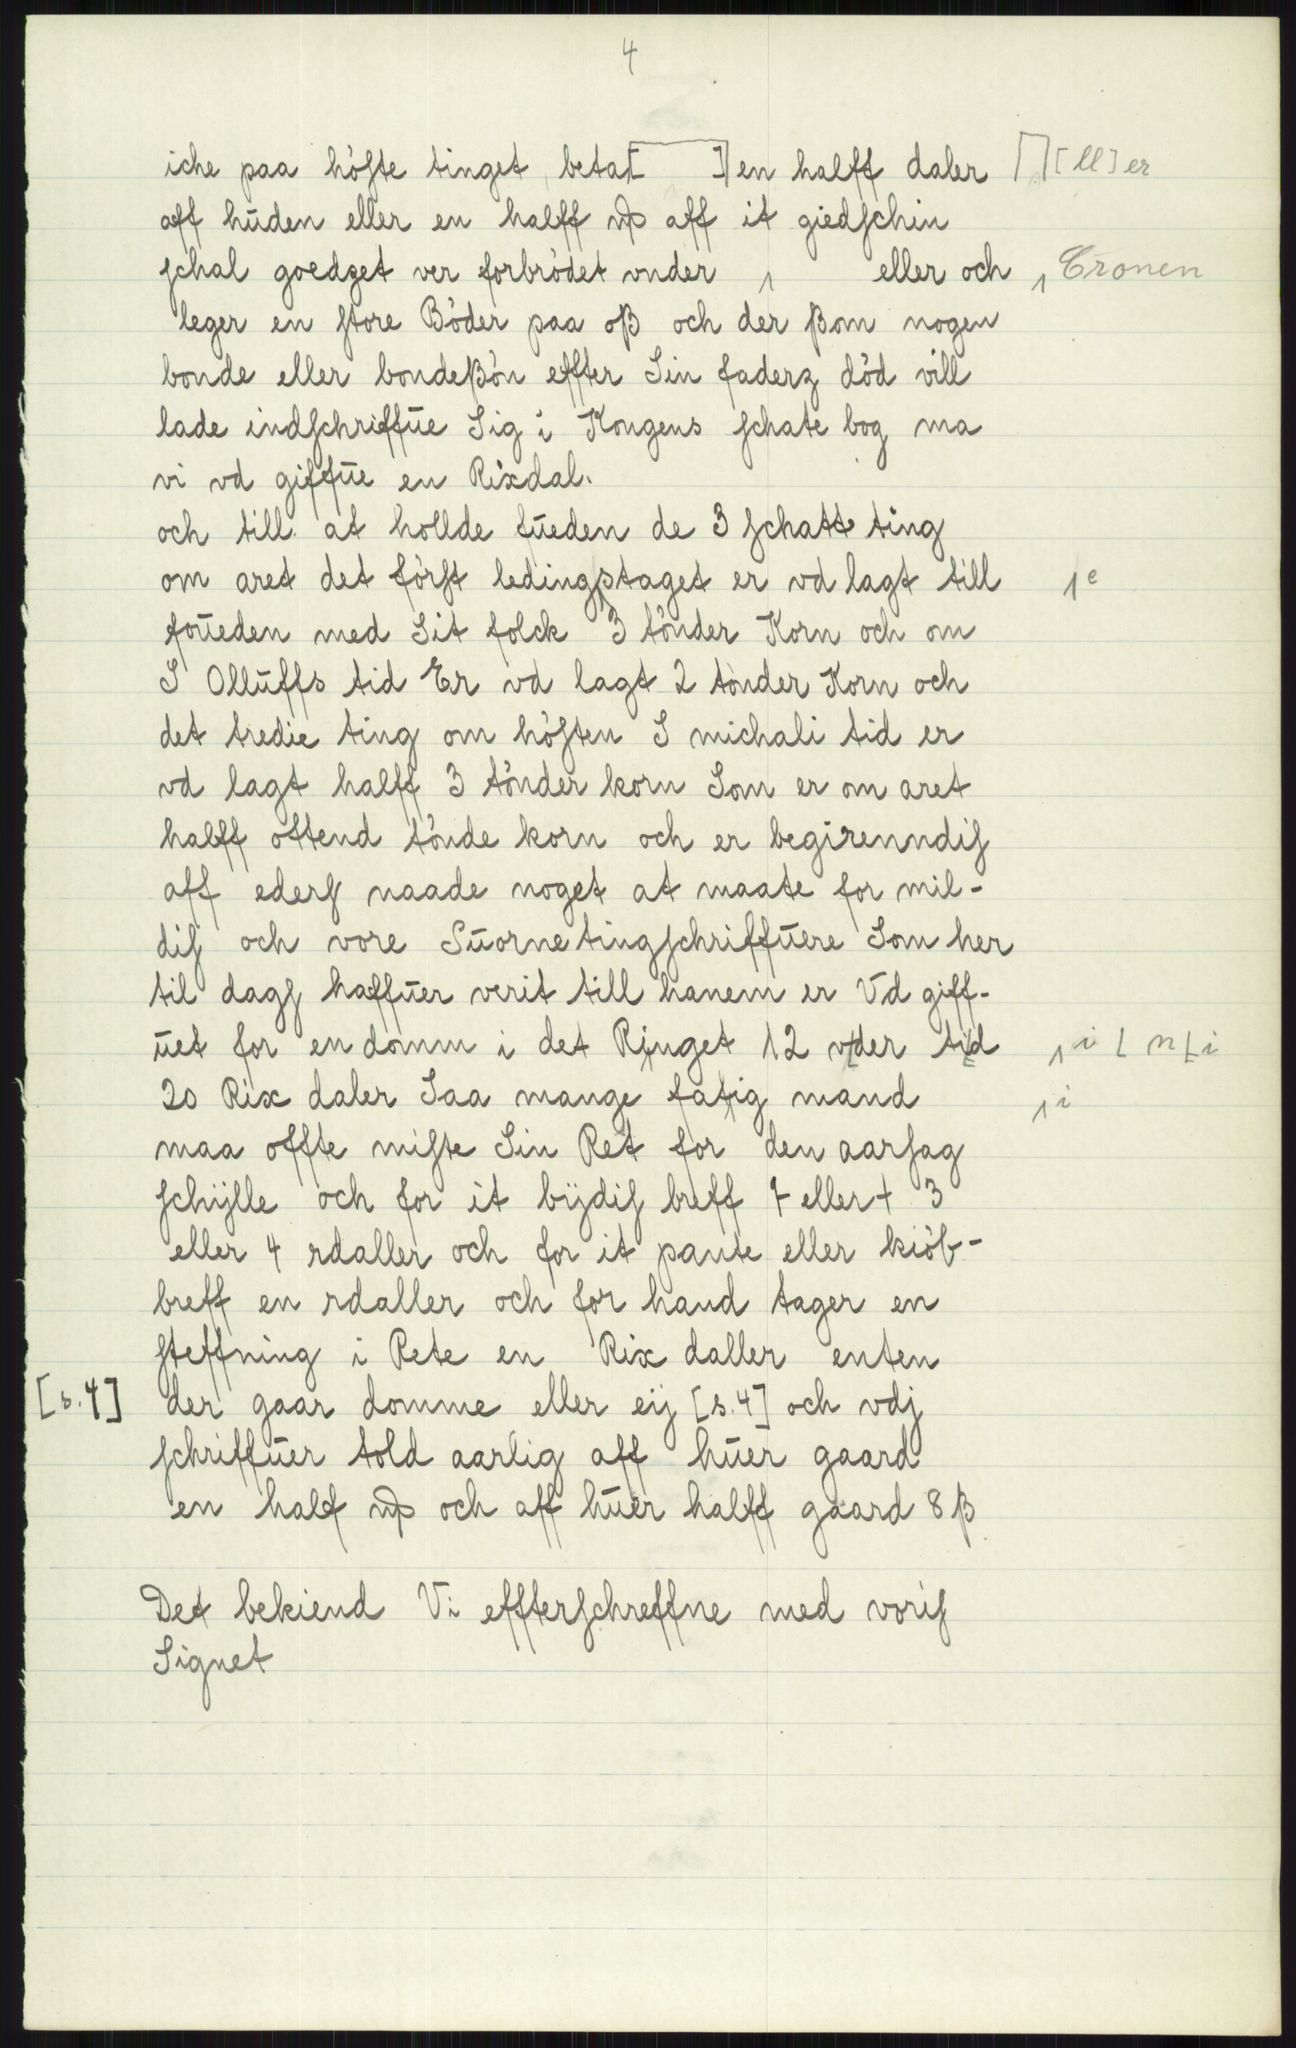 4
iche paa höfte tinget beta[ ] en halff daler ⌈⌉ [ll]er
aff huden eller en halff aff it giedschin
schal goedzet ver forbrödet vnder ˰ eller och ˰ Cronen
leger en store Böder paa oß och der ßom nogen
bonde eller bondeßön effter Sin faderz död vill
lade indschriffue Sig i Kongens schate bog ma
vi vd giffue en Rixdal.
och till at hollde fueden de 3 schatt ting
om aret det först ledingstaget er vd lagt till ˰e
foueden med Sit folck 3 tönder Korn och om
S Olluffs tid Er vd lagt 2 tönder Korn och
det tredie ting om hösten S michali tid er
vd lagt halff 3 tönder korn Som er om aret
halff ottend tönde korn och er begirenndis
aff eders naade noget at maate for mil-
dis och vore Suorne tingschriffuere Som her
til dags haffuer verit till hanem er Vd giff-
uet for en domm i det Ringet 12 vder tid ˰i ⌊n ⌊i
20 Rix daler Saa mange fatig mand ˰i
maa offte miste Sin Ret for den aarsag
schÿlle och for it bÿdis breff + eller + 3
eller 4 rdaller och for it pante eller kiöb-
breff en rdaller och for hand tager en
steffning i Rete en Rix daller enten
[s.4] der gaar domme eller eij [s.4] och vdj
schriffuer told aarlig aff huer gaard
en half och aff huer halff gaard 8 ß
Det bekiend Vi effterschreffne med voris
Signet